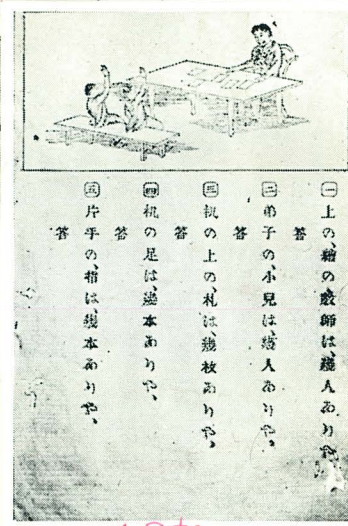 一 上の、繪の敎師は、幾人ありや、
答
二 弟子の、小兒は、幾人ありや、
答
三 机の上の、札は、幾枚ありや、
答
四 机の足は、幾本ありや、
答
五 片手の、指は、幾本ありや、
答